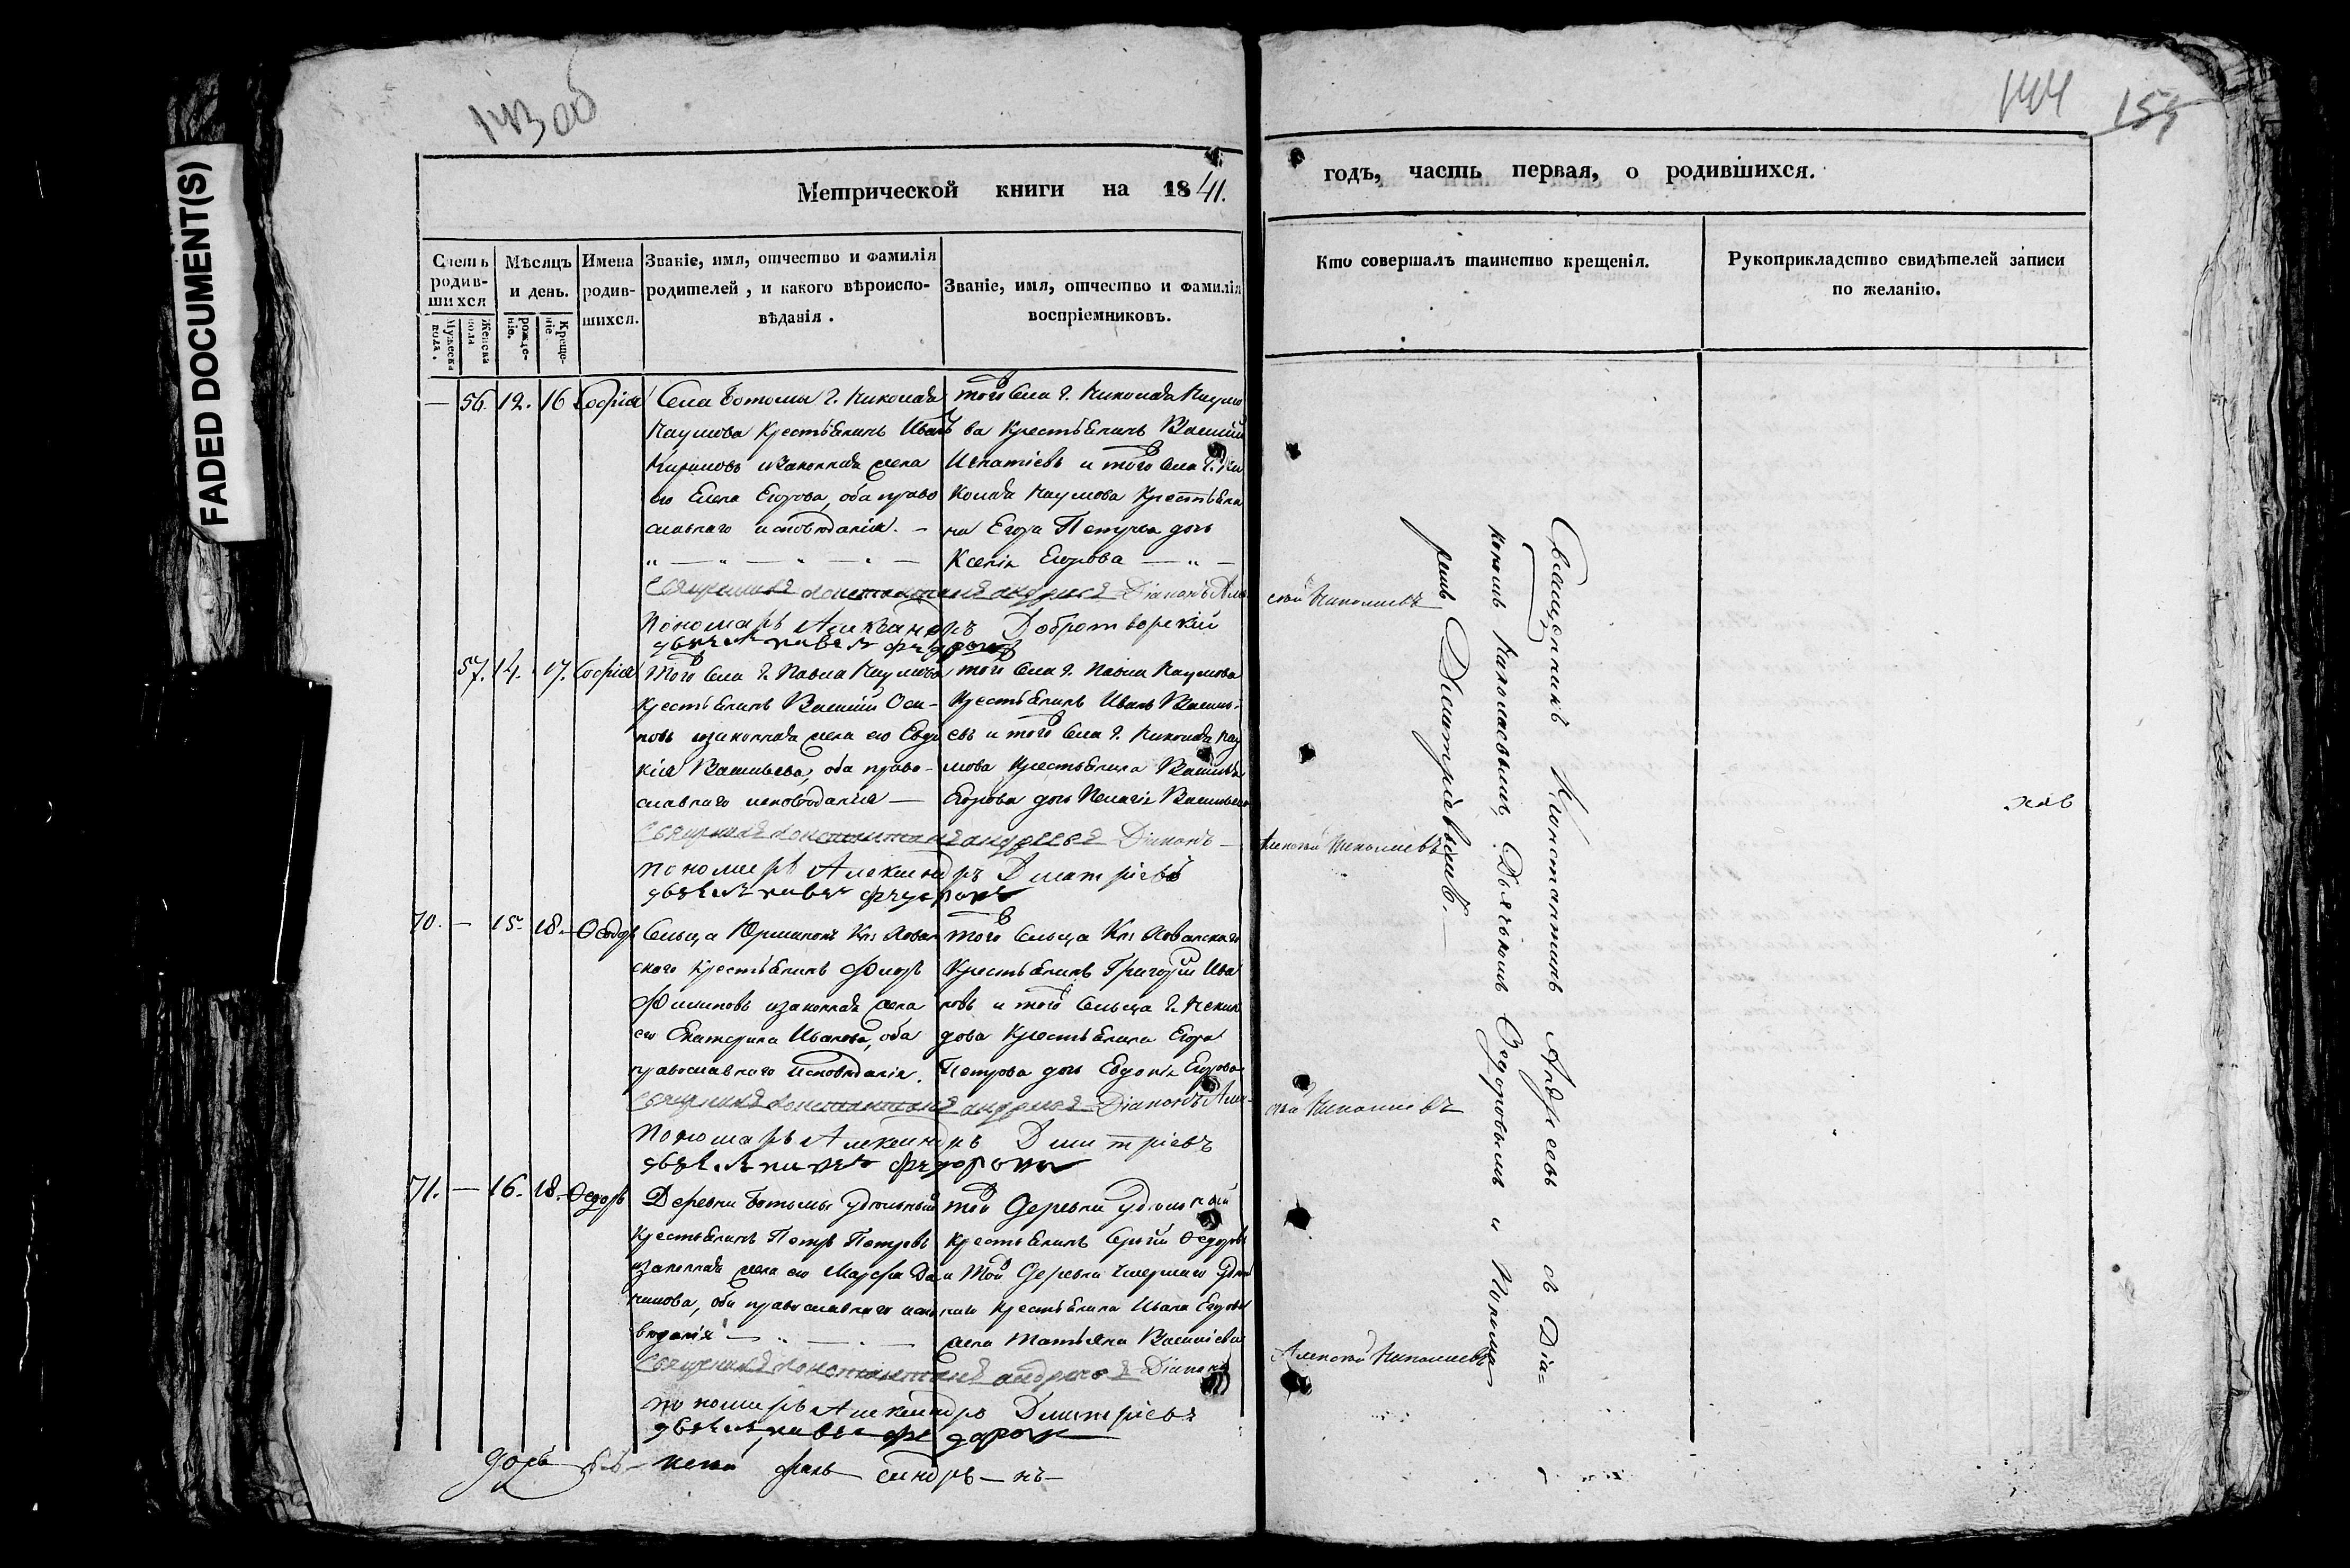 143 об
144
155
FADED DOCUMENT(S)
Метрической книги на 1841.
годъ, часть первая, о родившихся.
Счетъ родившихся
Мужеска пола.
Женска пола
Мѣсяцъ и день.
рожденіе.
Крещеніе
Имена родившихся.
Званіе, имя, отчество и фамилія родителей, и какого вѣроисповѣданія.
Званіе, имя, отчество и фамилія воспріемниковъ.
Кто совершалъ таинство крещенія.
Рукоприкладство свидѣтелей записи по желанію.
— 56. 12. 16 Софія
Села Ботомы Г. Николая
Наумова Крестьянинъ Иванъ
и законная жена
его Елена Егорова, оба право
славнаго исповѣданія. —
того Села Г. Николая Наумо
ва Крестьянинъ Василій
Игнатіевъ и того Села Г. Ни
колая Наумова Крестьяни
на Егора Петрова дочь
Ксенія Егорова
Священникъ Константинъ Андреевъ Діаконъ Але
ксѣй Николаевъ
Пономарь Александръ Добротворскій
57. 14. 17. Софія
Того Села Г. Павла Наумова
крестьянинъ Василій Оси-
повъ и законная жена его Евдо
кія Васильева, оба право-
славнаго исповѣданія —
того Села Г. Павла Наумова
Крестьянинъ Иванъ Василь-
евъ и того Села Г. Николая Нау
мова Крестьянина Василья
Егорова дочь Пелагія Васильева
Священникъ Константинъ Андреевъ Діаконъ —
Алексѣй Николаевъ
пономарь Александръ Дмитріевъ
70. — 15. 18. Ѳеодоръ
Сельца Юрмановъ Кн. Хован
скаго Крестьянинъ
Филиповъ и законная жена
его Екатерина Иванова, оба
православнаго исповѣданія.
того Сельца Кн. Хованскаго
Крестьянинъ Григорій Ива
новъ и того Сельца Г.
дова Крестьянина Егора
Петрова дочь Евдокія Егорова
Священникъ Константинъ Андреевъ Діаконъ Але-
ксѣй Николаевъ
Пономарь Александръ Дмитріевъ
71. — 16. 18. Ѳедоръ
Деревни Ботомы удѣльный
крестьянинъ Петръ Петровъ
и законная жена его Марфа Да
нилова, оба православнаго испо
вѣданія
той деревни удѣльный
крестьянинъ Сергій Ѳедоровъ
и той деревни умершаго удѣль
наго крестьянина Ивана Егорова
жена Татьяна Василіева
Священникъ Константинъ Андреевъ Діаконъ
Алексѣй Николаевъ
пономарь Александръ Дмитріевъ
Священникъ Константинъ Андреевъ съ Діа=
кономъ Николаевымъ, Дьячкомъ Ѳедоровымъ и Понома
ремъ Дмитріевымъ. —